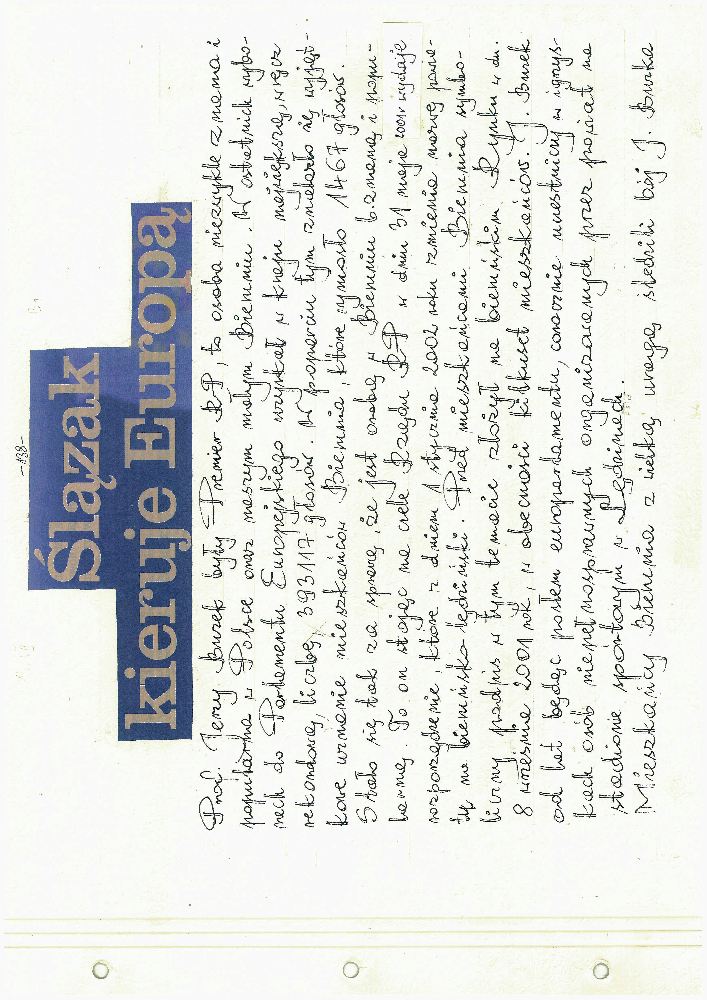 -138-
Ślązak
kieruje Europą
Prof. Jerzy Buzek były Premier RP, to osoba niezwykle znana i
popularna w Polsce oraz naszym małym Bieruniu. W ostatnich wybo-
rach do Parlamentu Europejskiego uzyskał w kraju największą, wręcz
rekordową liczbę 393117 głosów. W poparciu tym znalazło się wyjąt-
kowe uznanie mieszkańców Bierunia, które wyniosło 1467 głosów.
Stało się tak za sprawą, że jest osobą w Bieruniu b. znaną i popu-
larną. To on stojąc na czele Rządu RP w dniu 31 maja 2001r wydaje
rozporządzenie, które z dniem 1 stycznia 2002 roku zmienia nazwę powia-
tu na bieruńsko lędziński. Przed mieszkańcami Bierunia symbo-
liczny podpis w tym temacie złożył na bieruńskim Rynku w dn.
8 września 2001 rok, w obecności kilkuset mieszkańców. J. Buzek
od lat będąc posłem europarlamentu, corocznie uczestniczy w igrzys-
kach osób niepełnosprawnych organizowanych przez powiat na
stadionie sportowym w Lędzinach.
Mieszkańcy Bierunia z wielką uwagą śledzili bój J. Buzka